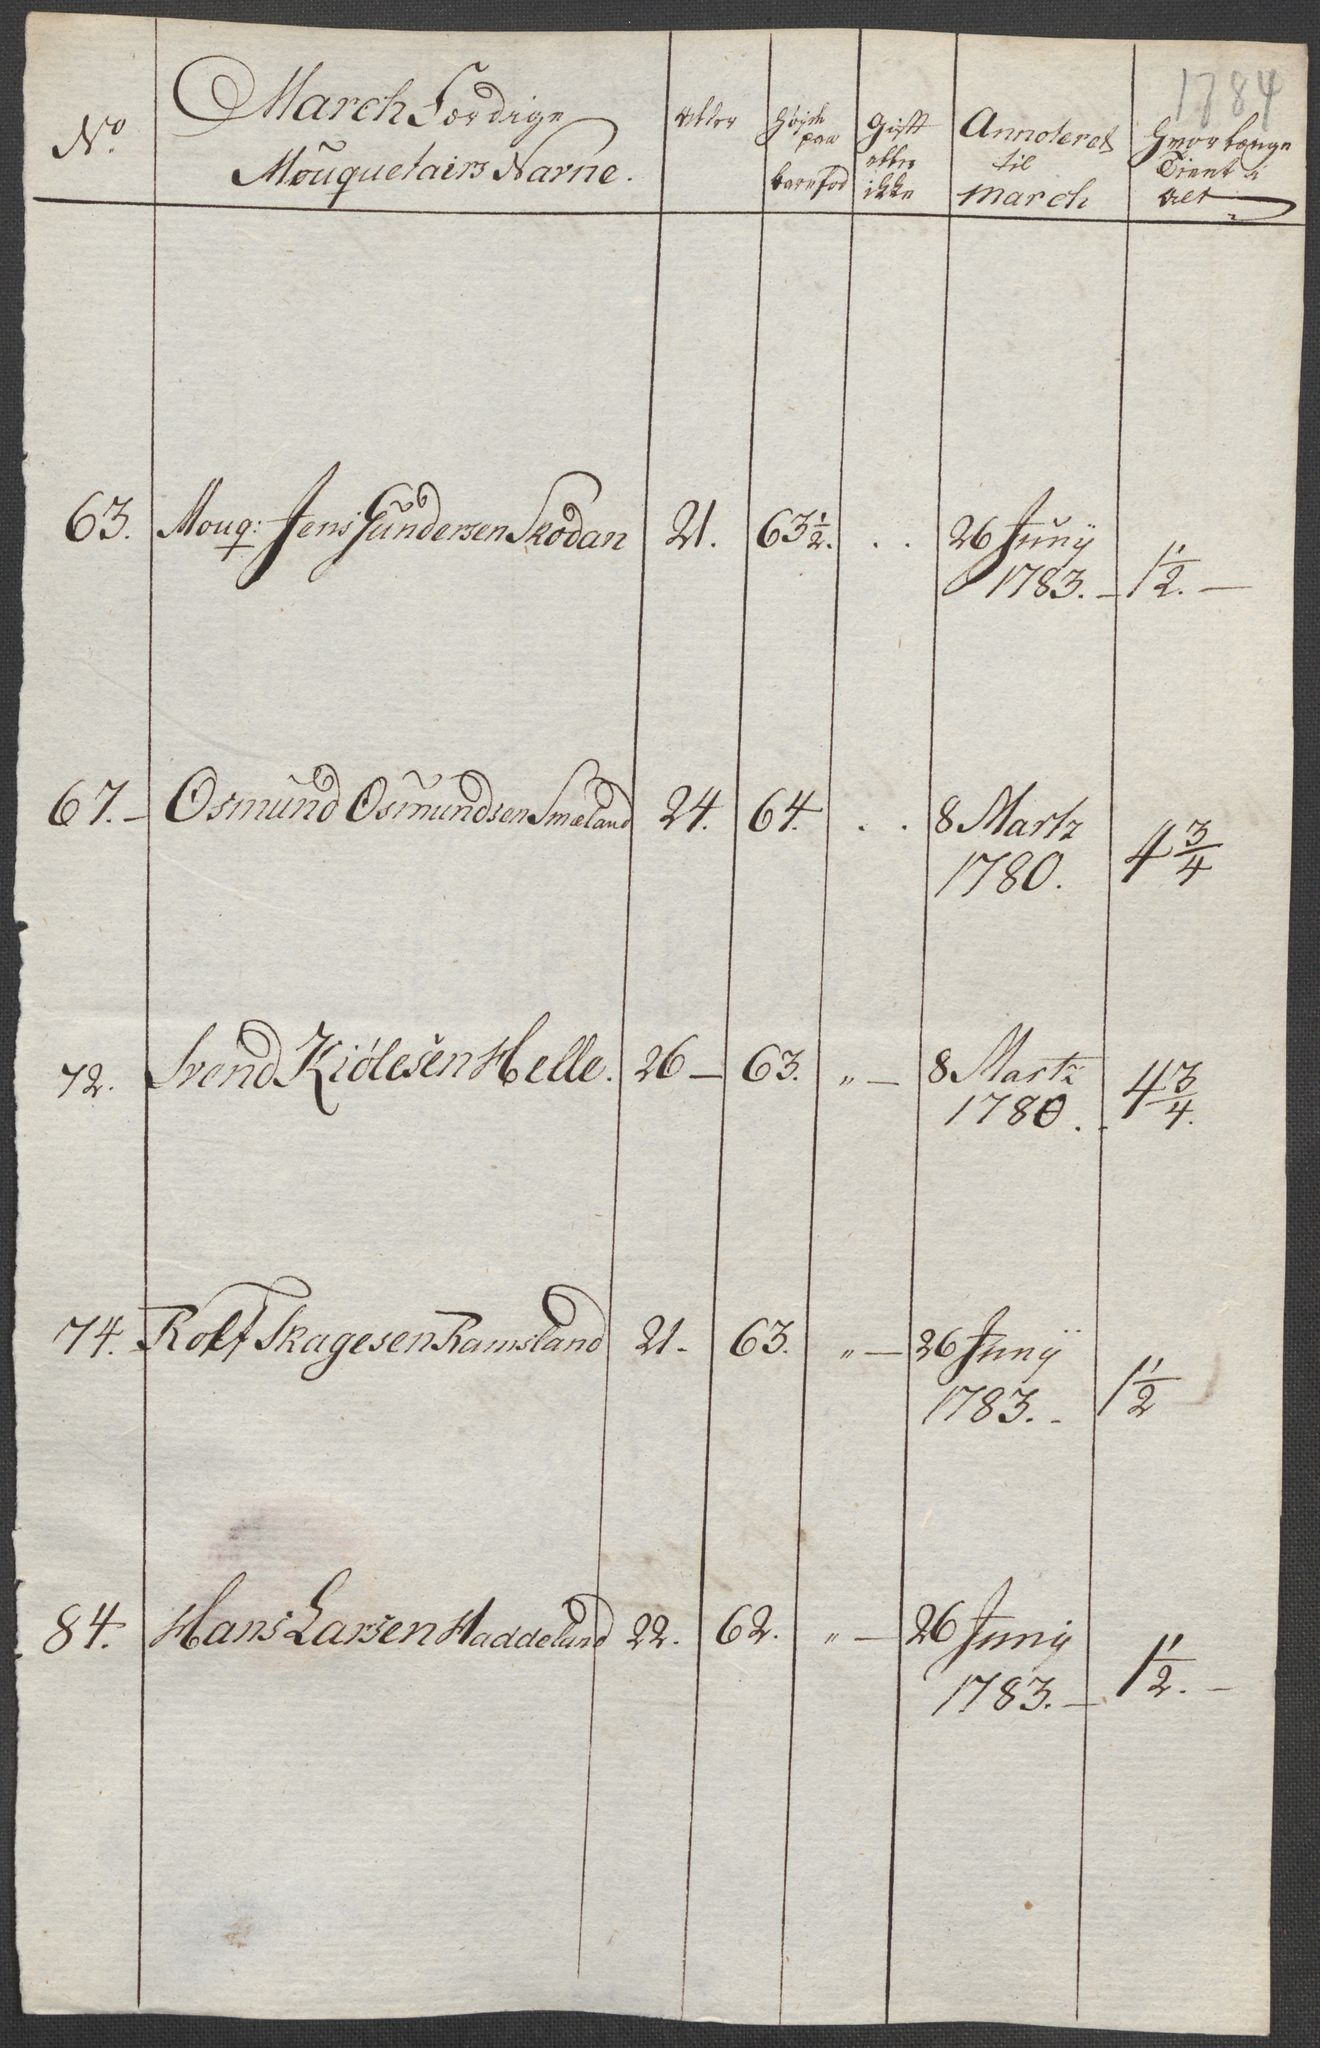 1784
No
March Færdige
Mouquetairs Nafne.
Alder
Høyde
paa
barefod
Gift
eller
ikke
Annoteret
til
March
Hvor længe
Tient i
Alt
63. Mouq: Jens Gundersen Skodan 21. 63 1/2. . . 26 Junÿ
1783. – 1 1/2. –
67. – Osmund Osmundsen Smæland 24. 64. . . 8 Martz
1780. 4 3/4
72. Svend Kiølesen Helle. 26 – 63. „ – 8 Martz
1780. . 4 3/4.
74. Rolf Skagesen Ramsland 21. 63. „ – 26 Junÿ
1783. – 1 1/2
84. Hans Larsen Haddeland 22. 62. „ – 26 Junÿ
1783. – 1 1/2. –